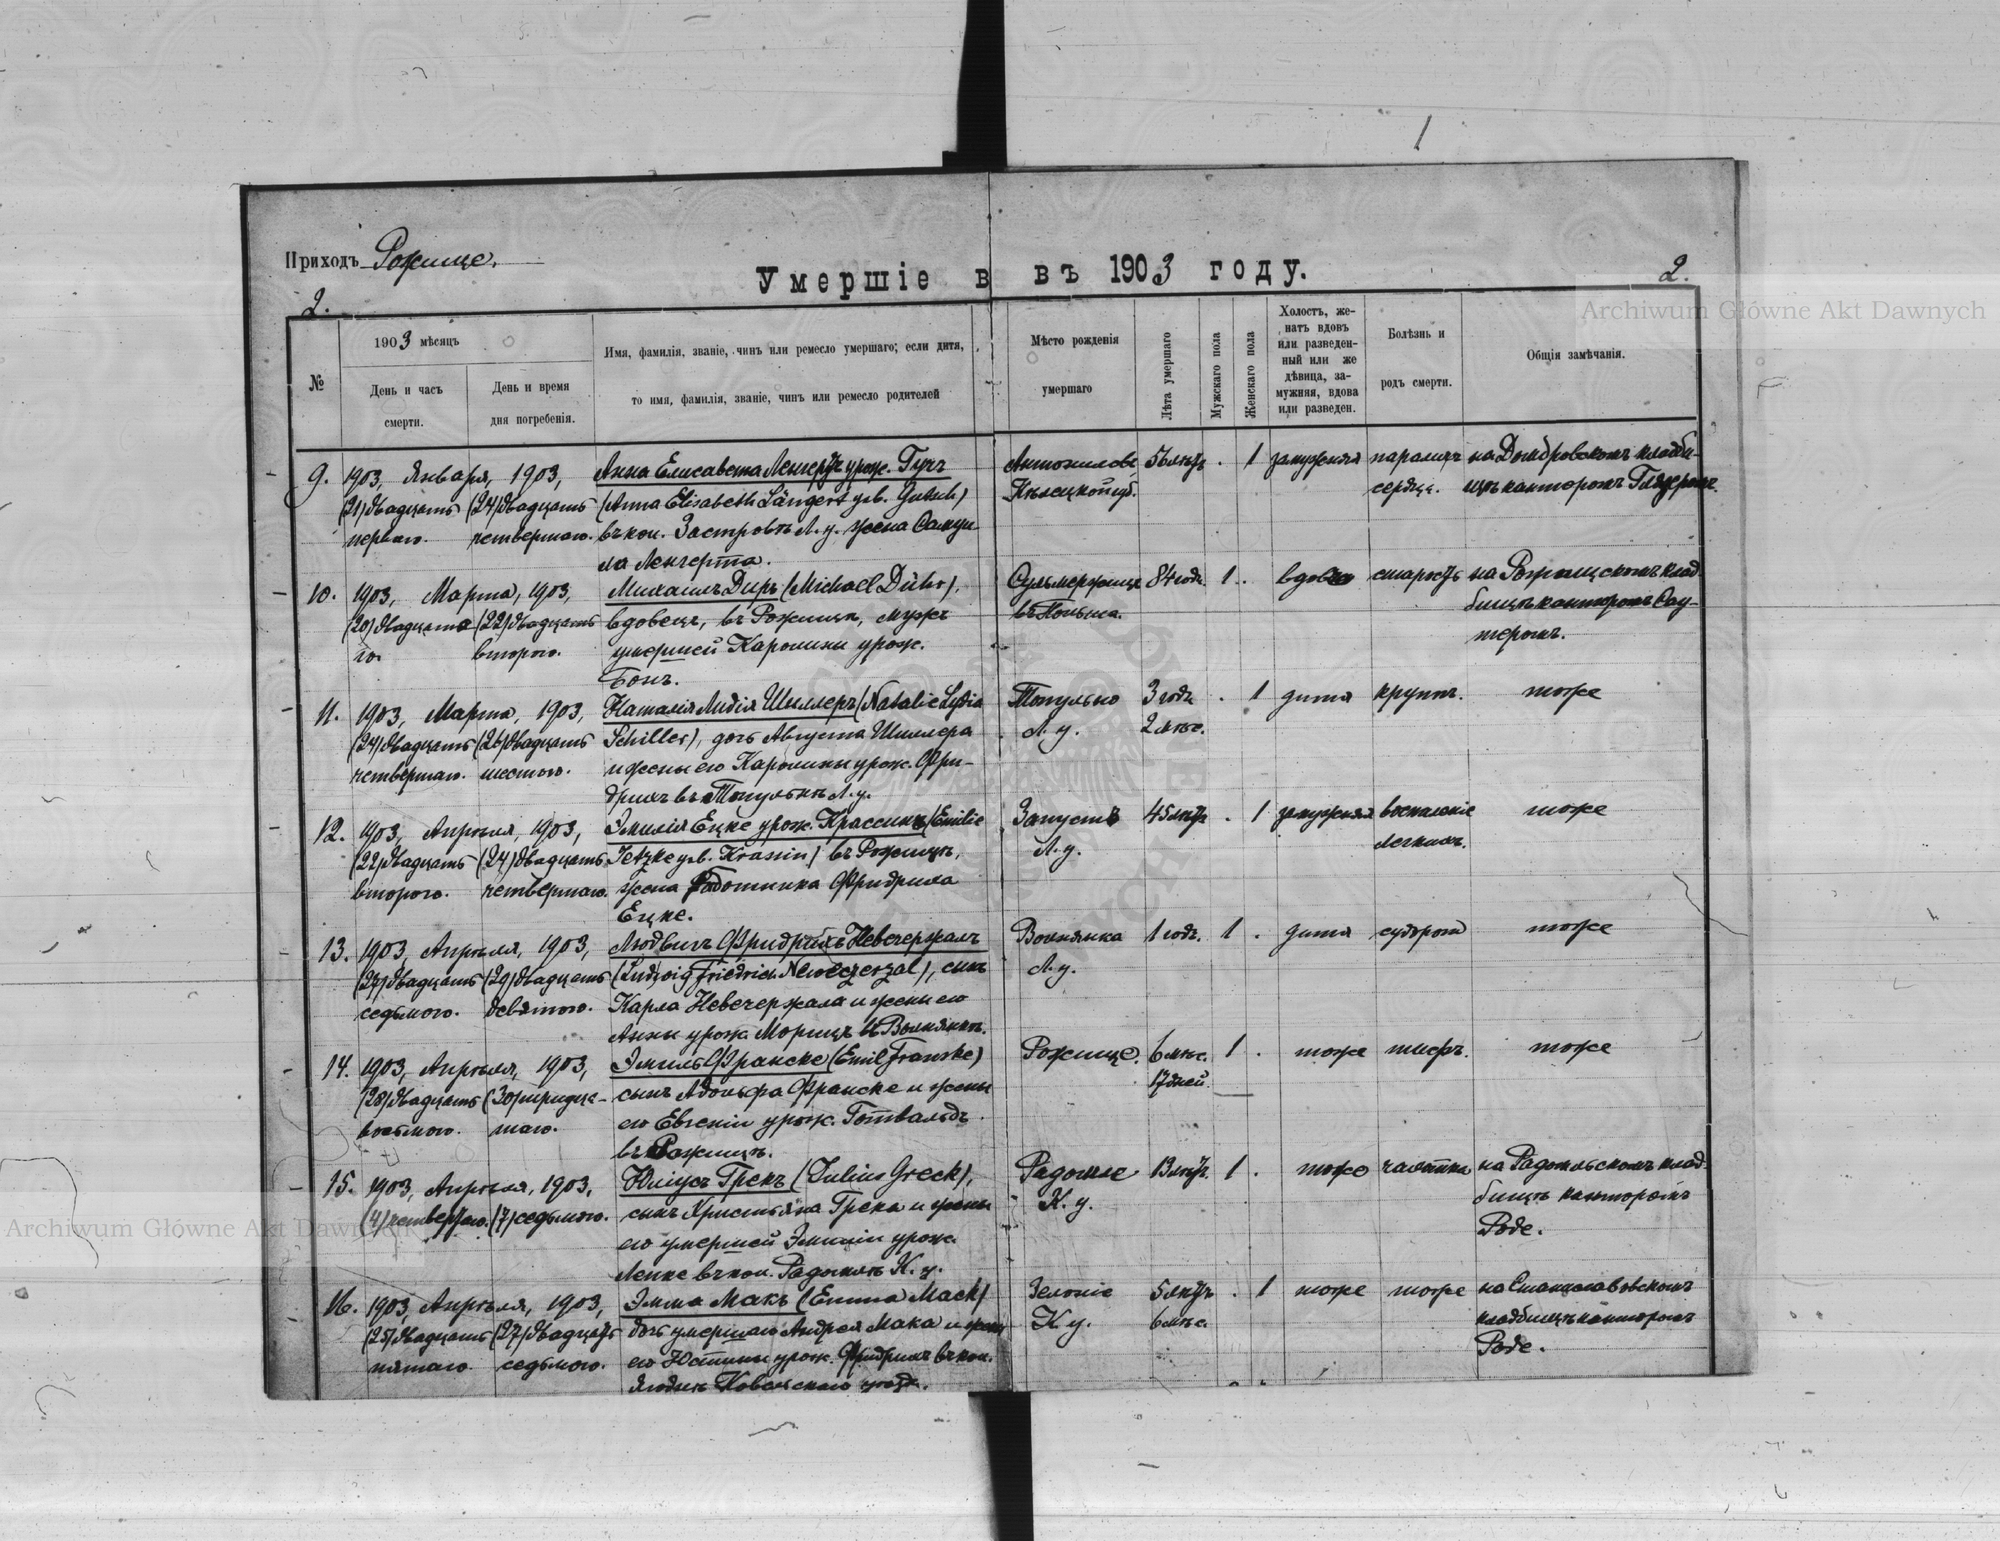 1
Приходъ Рожище.
Умершіе въ 1903 году.
2.
2.
Archiwum Główne Akt Dawnych
№
1903 мѣсяцъ
День и часъ смерти.
День и время дня погребенія.
Имя, фамилія, званіе, чинъ или ремесло умершаго; если дитя,
то имя, фамилія, званіе, чинъ или ремесло родителей
Мѣсто рожденія
умершаго
Лѣта умершаго
Мужскаго пола
Женскаго пола
Холостъ, же-
натъ вдовъ
или разведен-
ный или же
дѣвица, за-
мужняя, вдова
или разведен.
Болѣзнь и
родъ смерти.
Общія замѣчанія.
9. 1903, Января, 1903, Анна Елисавета Ленгертъ урож. Гучъ 56 лѣтъ . 1 замужняя параличъ на Домбровскомъ кладби-
(21) двадцать (24) двадцать (Anna Elisabeth Längert geb. Gutsch) сердца. щѣ канторомъ
перваго. четвертаго. въ кол. Застровъ Л. у. жена Самуи
ла Ленгерта.
10. 1903, Марта, 1903, Михаилъ Диръ (Michael Dühr), 84 года 1 . вдовъ старость на Рожищскомъ клад
(20) двадцата (22) двадцать вдовецъ, въ Рожищѣ, мужъ въ Польша. бищѣ канторомъ Сау-
го. второго. умершей Каролины урож. теромъ.
Бонъ.
11. 1903, Марта, 1903, Наталія Лидія Шиллеръ (Natalie Lydia Топульно 3 года . 1 дитя крупъ. тоже
(24) двадцать (26) двадцать Schiller), дочь Августа Шиллера Л. у. 2 мѣс.
четвертаго. шестого. и жены его Каролины урож. Фри-
дрихъ въ Топульнѣ Л. у.
12. 1903, Апрѣля, 1903, Эмилія Ецке урож. Крассинъ (Emilie Запустъ 45 лѣтъ . 1 замужняя воспаленіе тоже
(22) двадцать (24) двадцать Jetzke geb. Krassin) въ Рожищѣ, Л. у. легкихъ.
второго. четвертаго. жена работника Фридриха
Ецке.
13. 1903, Апрѣля, 1903, Людвигъ Фридрихъ Невечержалъ Волнянка 1 годъ. 1 . дитя судорог тоже
(27) двадцать (29) двадцать (Ludwig Friedrich Neweczerzal), сынъ Л. у.
седьмого. девятого. Карла Невечержала и жены его
Анны урож. Морицъ въ Волнянкѣ.
14. 1903, Апрѣля, 1903, Эмиль Франске (Emil Franske) Рожище. 6 мѣс. 1 . тоже тифъ. тоже
(28) двадцать (30) тридца- сынъ Адольфа Франске и жены 17 дней.
восьмого. таго. его Евгеніи урож. Готвальдъ
въ Рожищѣ.
15. 1903, Апрѣля, 1903, Юліусъ Грекъ (Julius Greck), Радомле 13 лѣтъ. 1 . тоже чахотка на Радомльскомъ клад
(4) четвертаго. (7) седьмого. сынъ Христьяна Грека и жены К. у. бищѣ канторомъ
его умершей Эмиліи урож. Роде.
Лепке въ кол. Радомлѣ К. у.
16. 1903, Апрѣля, 1903, Эмма Макъ (Emma Mack) Зеленіе 5 лѣтъ . 1 тоже тоже на Станиславовскомъ
(25) двадцать (27) двадцать дочь умершаго Андрея Мака и жены К. у. 6 мѣс. кладбищѣ канторомъ
пятаго. седьмого. его Юстины урож. Фридрихъ въ кол. Роде.
Ковельскаго уѣзда.
Archiwum Główne Akt Dawnych